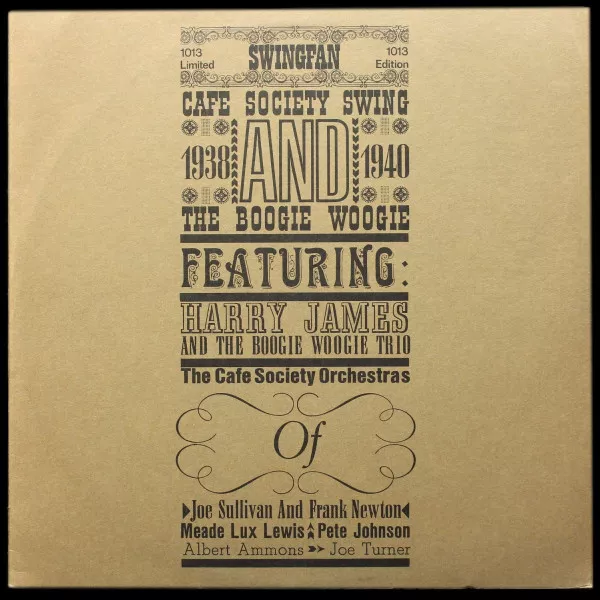 1013 SWINGFAN 1013
Limited Edition
CAFE SOCIETY SWING
1938 AND 1940
THE BOOGIE WOOGIE
FEATURING:
HARRY JAMES
AND THE BOOGIE WOOGIE TRIO
The Cafe Society Orchestras
Of
Joe Sullivan And Frank Newton
Meade Lux Lewis Pete Johnson
Albert Ammons Joe Turner